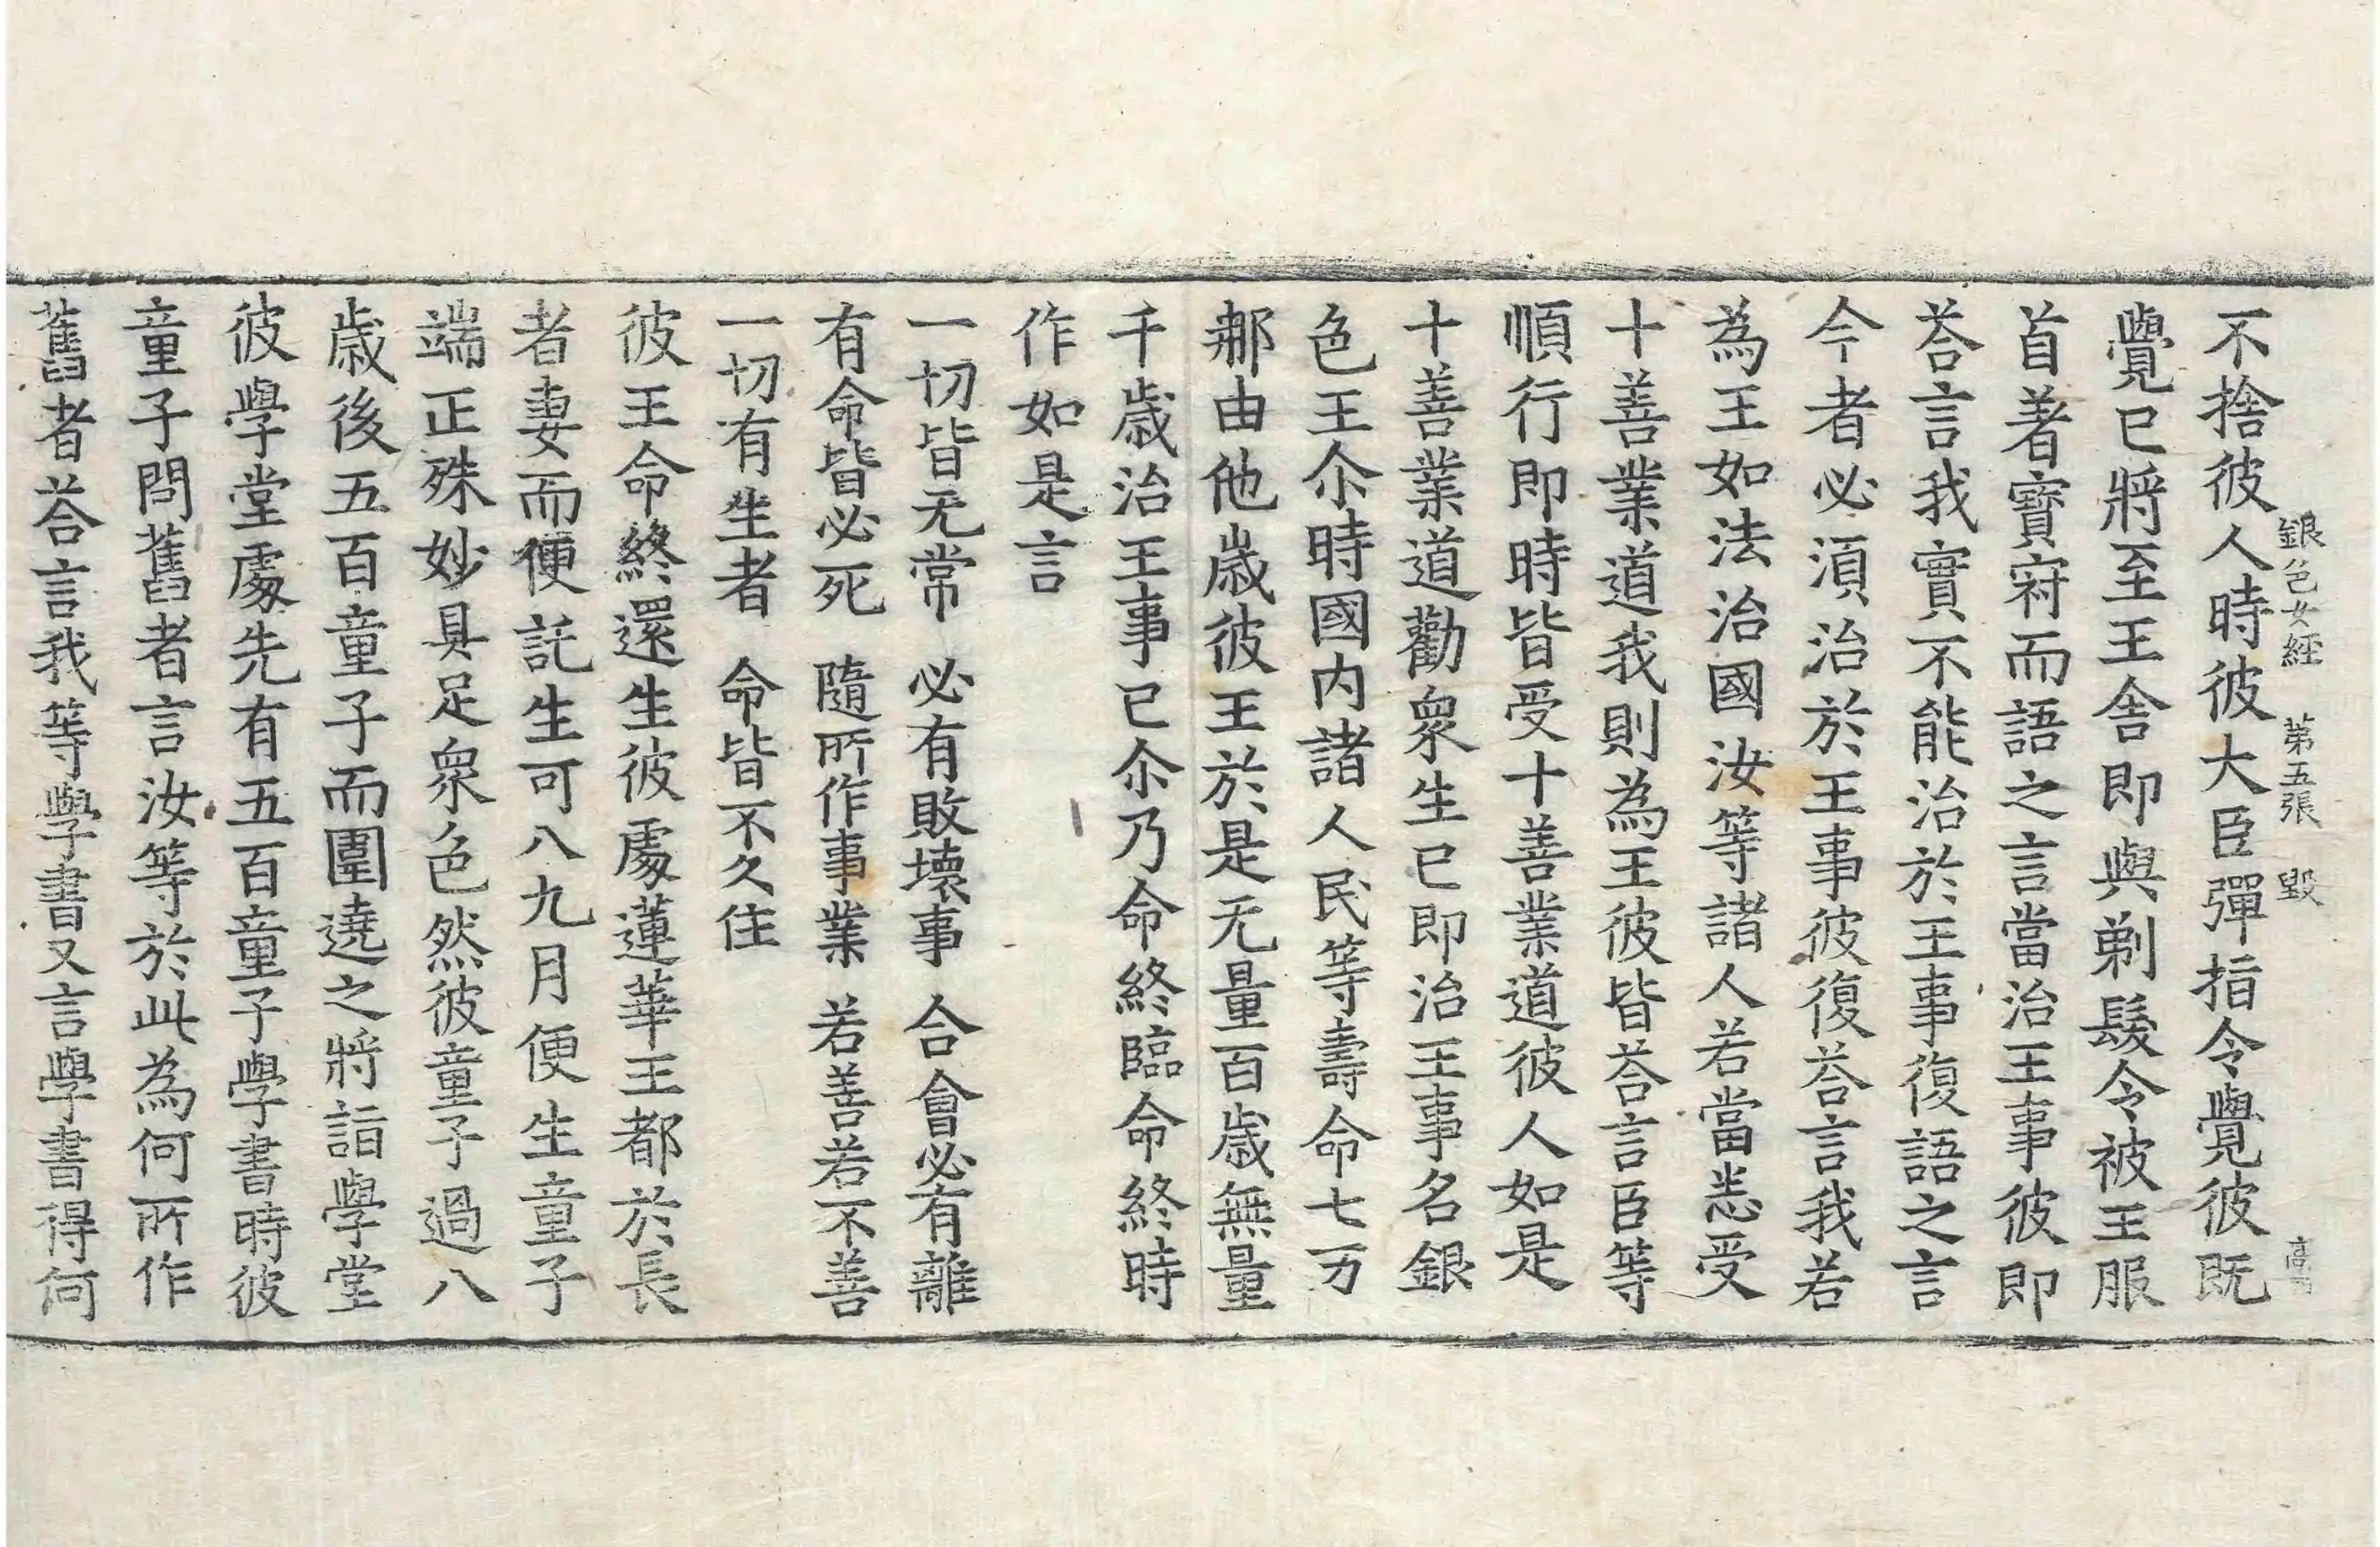 銀色女經 第五張 毀
不捨彼人時彼大臣彈指令覺彼既
覺已將至王舍即與剃髮令被王服
首著寶㝷而語之言當治王事彼即
荅言我實不能治於王事復語之言
今者必湏治於王事彼復荅言我若
為王如法治國汝等諸人若當悉受
十善業道我則為王彼皆荅言臣等
順行即時皆受十善業道彼人如是
十善業道勸衆生已即治王事名銀
色王尒時國内諸人民等壽命七万
郍由他歲彼王於是无量百歲無量
千歲治王事已尒乃命終臨命終時
作如是言
一切皆无常 必有敗壞事 合會必有離
有命皆必死 隨所作事業 若善若不善
一切有生者 命皆不久住
彼王命終還生彼處蓮華王都於長
者妻而便託生可八九月便生童子
端正殊妙具足衆色然彼童子過八
歲後五百童子而圍遶之將詣學堂
彼學堂處先有五百童子學書時彼
童子問舊者言汝等於此為何所作
舊者荅言我等學書又言學書得何